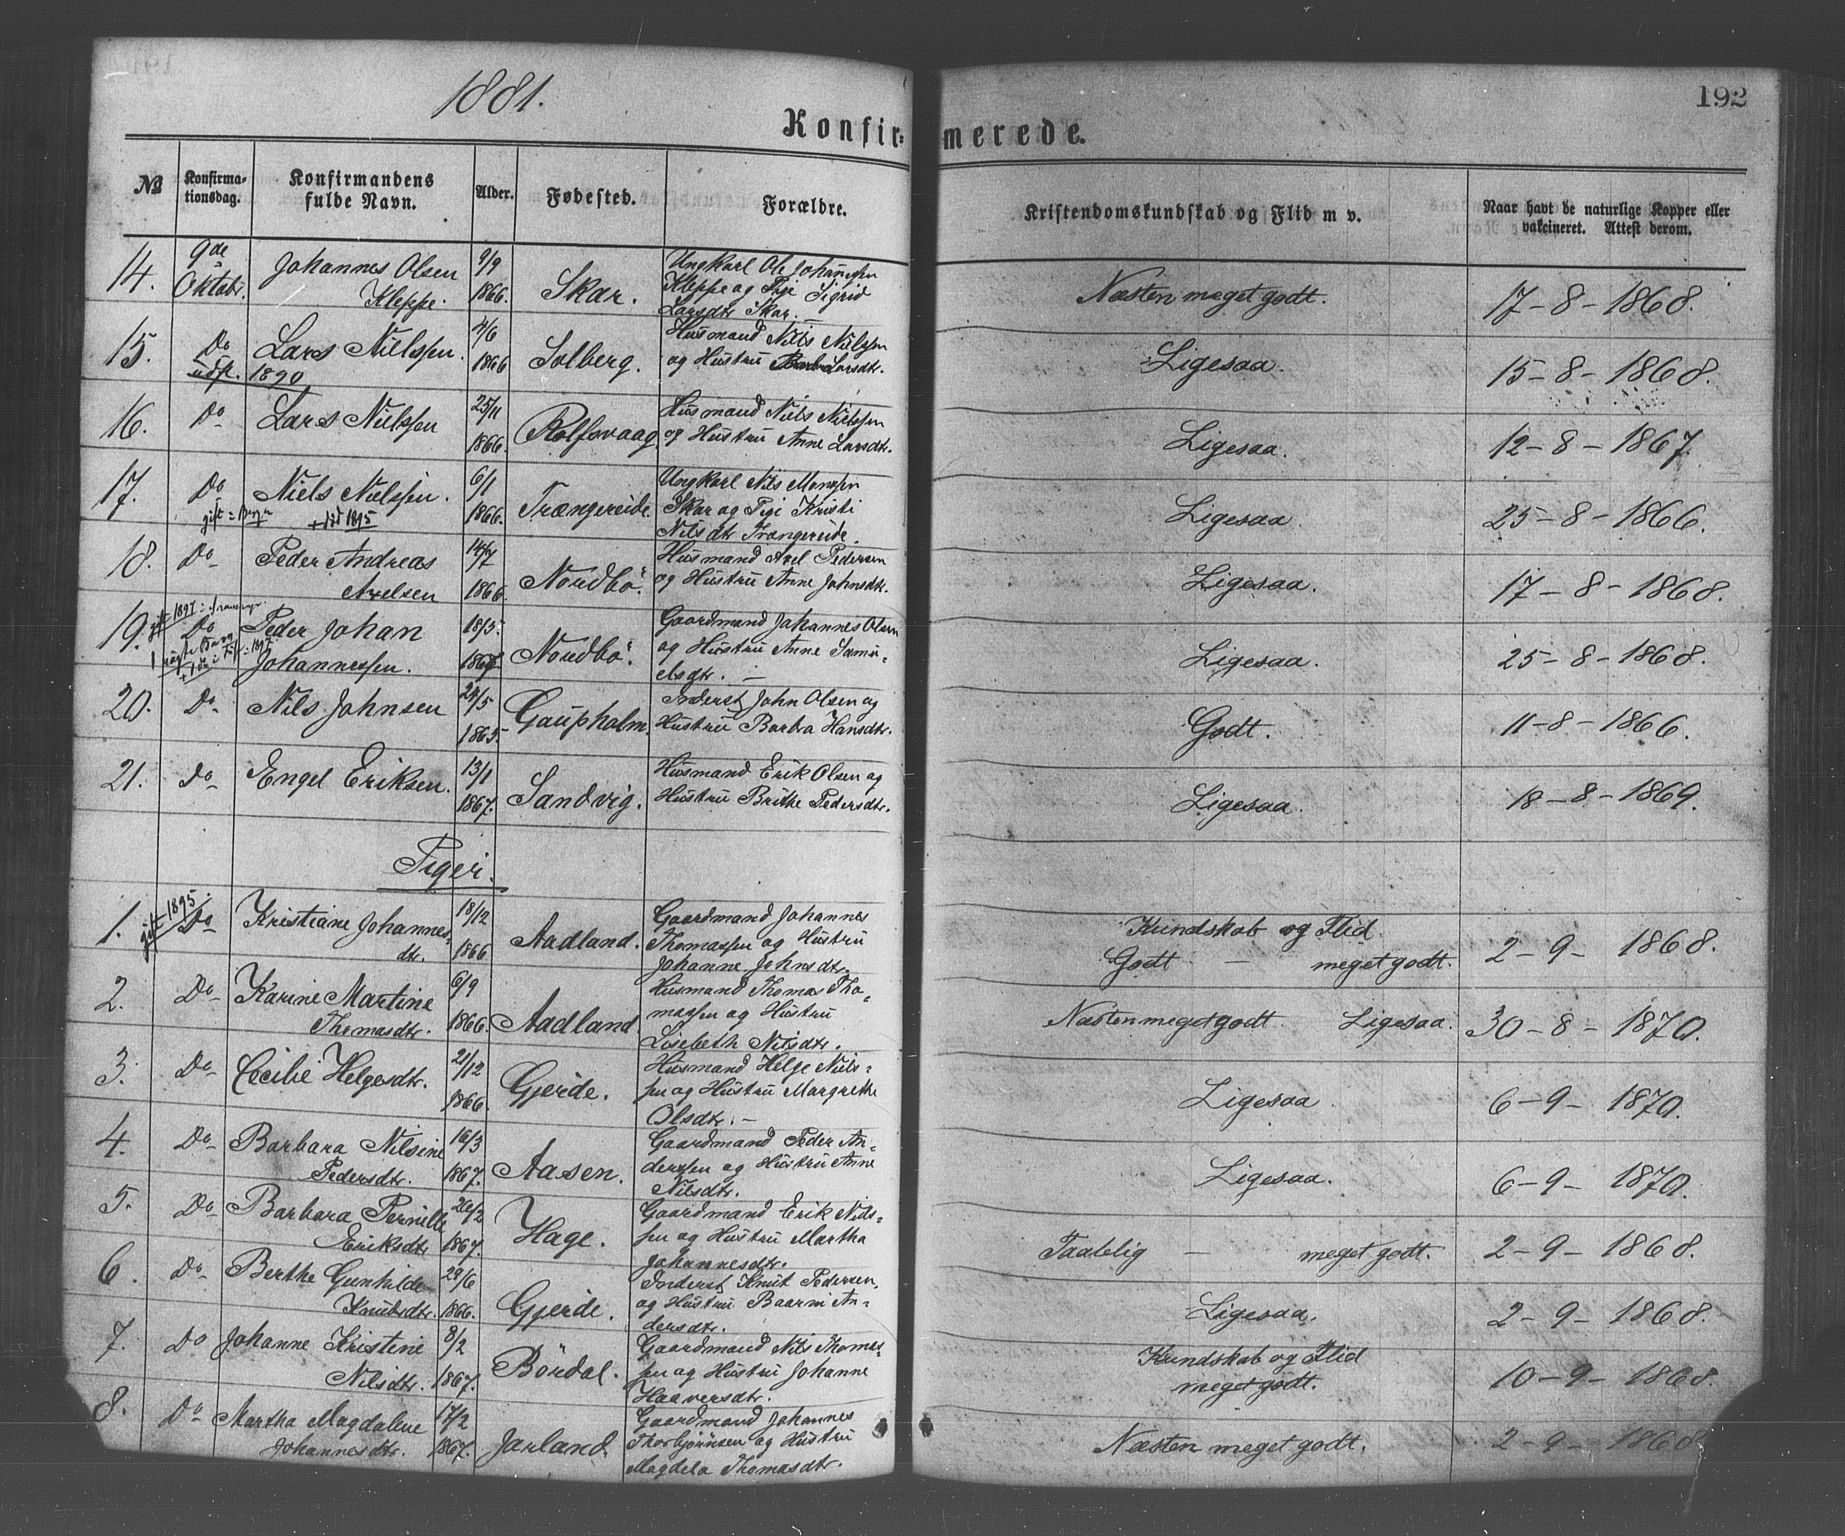 1881.
192
Konfirmerede.
№ Konfirmationsdag. Konfirmandens fulde Navn. Alder. Fødested. Forældre. Kristendomskundskab og Flid m v. Naar havt de naturlige Kopper eller vakcineret. Attest derom.
14. 9de Oktobr. Johannes Olsen Kleppe. 9/9 1866. Skar. Ungkarl Ole Johannssen Kleppe og Pige Sigrid Larsdtr Skar. Næsten meget godt. 17-8-1868.
15. Do Lars Nielssen. 4/6 1866 Solberg. Husmand Nils Nielsen og Hustru Larsdtr. Ligesaa. 15-8-1868.
udfl. 1890
16. Do Lars Nielssen 25/11 1866. Rolfsvaag Husmand Niels Nielssen og Hustru Anne Larsdtr. Ligesaa. 12-8-1867.
17. Do Niels Nielssen. 6/1 1866. Trængereide. Ungkarl Nils Monssen Skar og Pige Kristi Nilsdt Trængereide. Ligesaa. 25-8-1866.
18. Do Peder Andreas Axelsen 14/7 1866. Nordbö. Husmand Axel Pedersen og Hustru Anne Johnsdtr. Ligesaa. 17-8-1868.
gift 1897
19. Do Peder Johan Johannessen. 18/5. 1867. Nordbö. Gaardmand Johannes Olsen og Hustru Anne Samuelsdtr. — Ligesaa. 25-8-1868.
20. Do Nils Johnsen 24/5 1865. Gaupholm. Inderst John Olsen og Hustru Barbra Hansdtr. Godt. 11-8-1866.
21. Do Engel Eriksen. 13/1 1867. Sandvig. Husmand Erik Olsen og Hustru Brithe Pedersdtr. Ligesaa. 18-8-1869.
Piger.
gift 1895
1. Do Kristiane Johannesdtr. 18/12 1866 Aadland. Gaardmand Johannes Thomassen og Hustru Johanne Johnsdtr. Kundskab og Flid. Godt — meget godt. 2-9-1868.
2. Do Karine Martine Thomasdtr. 6/9 1866. Aadland Husmand Thomas Thomassen og Hustru Lisebeth Nilsdtr. Næsten meget godt. Ligesaa. 30-8-1870.
3. Do Cecilie Helgesdtr. 21/12 1866. Gjerde. Husmand Helge Nielssen og Hustru Margrethe Olsdtr. — Ligesaa. 6-9-1870.
4. Do Barbara Nilsine Pedersdtr. 16/3 1867. Aasen. Gaardmand Peder Anderssen og Hustru Anne Nilsdtr. Ligesaa. 6-9-1870.
5. Do Barbara Pernille Eriksdtr 26/2 1867. Hage. Gaardmand Erik Nilssen og Hustru Martha Johannesdtr. Taalelig — meget godt. 2-9-1868.
6. Do Berthe Gunhilde Knudsdtr. 29/6 1866. Gjerde. Inderst Knut Pedersen og Hustru Baarni Andersdtr. Ligesaa. 2-9-1868.
7. Do Johanne Kristine Nilsdtr. 8/2 1867. Bördal. Gaardmand Nils Thomassen og Hustru Johanne Haaversdtr. Kundskab og Flid meget godt. 10-9-1868.
8. Do Martha Magdalene Johannesdtr. 17/2 1867. Jarland. Gaardmand Johannes Thorbjörnsen og Hustru Magdela Thomasdtr. Næsten meget godt. 2-9-1868